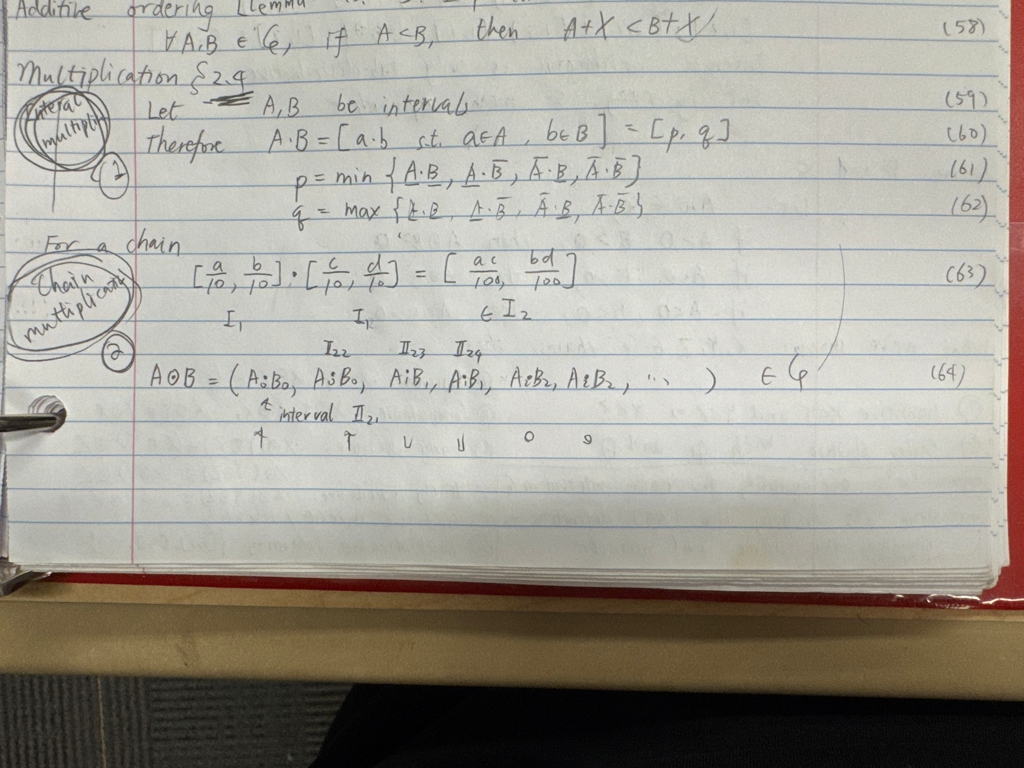 Additive ordering
∀A,B ∈ 𝒞, if A<B, then A+X < B+X (58)
Multiplication §2.4
Interal multipli
①
Let A,B be intervals (59)
Therefore A·B = [a·b s.t. a∈A, b∈B] = [p, q] (60)
p = min {A̲·B̲, A̲·B̄, Ā·B̲, Ā·B̄} (61)
q = max {A̲·B̲, A̲·B̄, Ā·B̲, Ā·B̄} (62)
For a chain
Chain multiplicatio
②
[a/10, b/10]·[c/10, d/10] = [ac/100, bd/100] (63)
I₁ I₁ ∈ I₂
II₂₂ II₂₃ II₂₄
A⊙B = ( B₀, B₀, B₁, B₁, B₂, B₂, ... ) ∈ (64)
↑ interval II₂₁